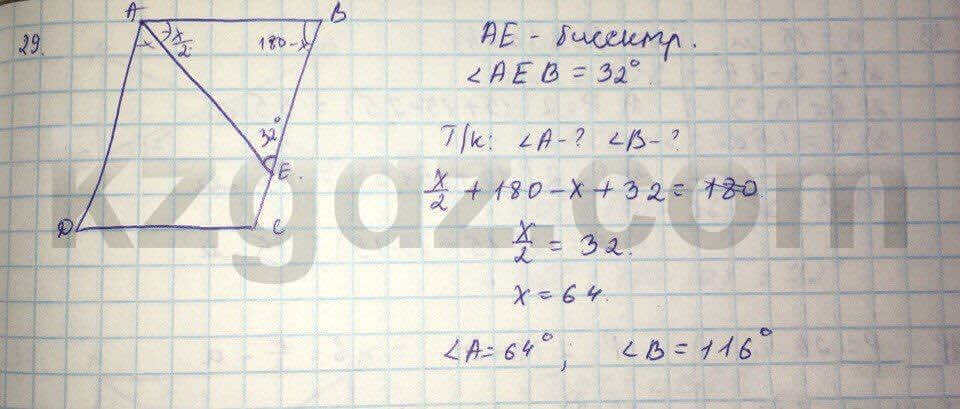 29.
A
B
x
x/2
180-x
32°
E.
D
C
AE - биссектр.
∠AEB = 32°.
Т/к: ∠A-? ∠B-?
x/2 + 180 - x + 32 = 180.
x/2 = 32.
x = 64.
∠A = 64°; ∠B = 116°
kzgdz.com